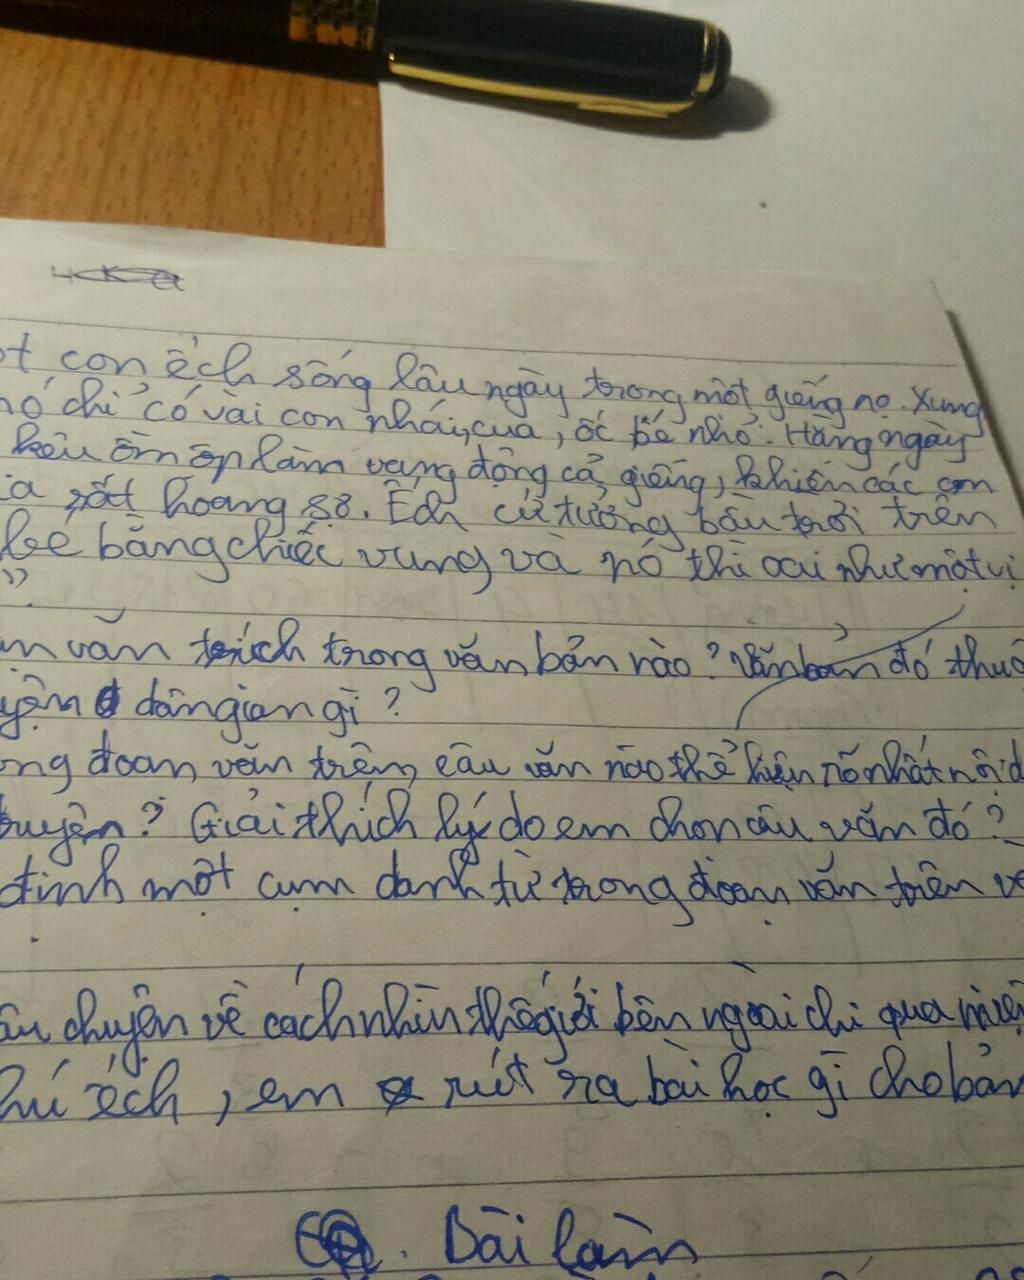 ột con ếch sống lâu ngày trong một giếng nọ. Xung
nó chỉ có vài con nhái, cua, ốc bé nhỏ. Hàng ngày
kêu ồm ộp làm vang động cả giếng, khiến các con
ia rất hoang sợ. Ếch cứ tưởng bầu trời trên
bé bằng chiếc vung và nó thì oai như một vị
".
n văn trích trong văn bản nào? Văn bản đó thuộ
yện dân gian gì?
ong đoạn văn trên, câu văn nào thể hiện rõ nhất nội d
truyện? Giải thích lý do em chọn câu văn đó?
định một cụm danh từ trong đoạn văn trên và
âu chuyện về cách nhìn thế giới bên ngoài chỉ qua miện
hú ếch, em rút ra bài học gì cho bản
Bài làm